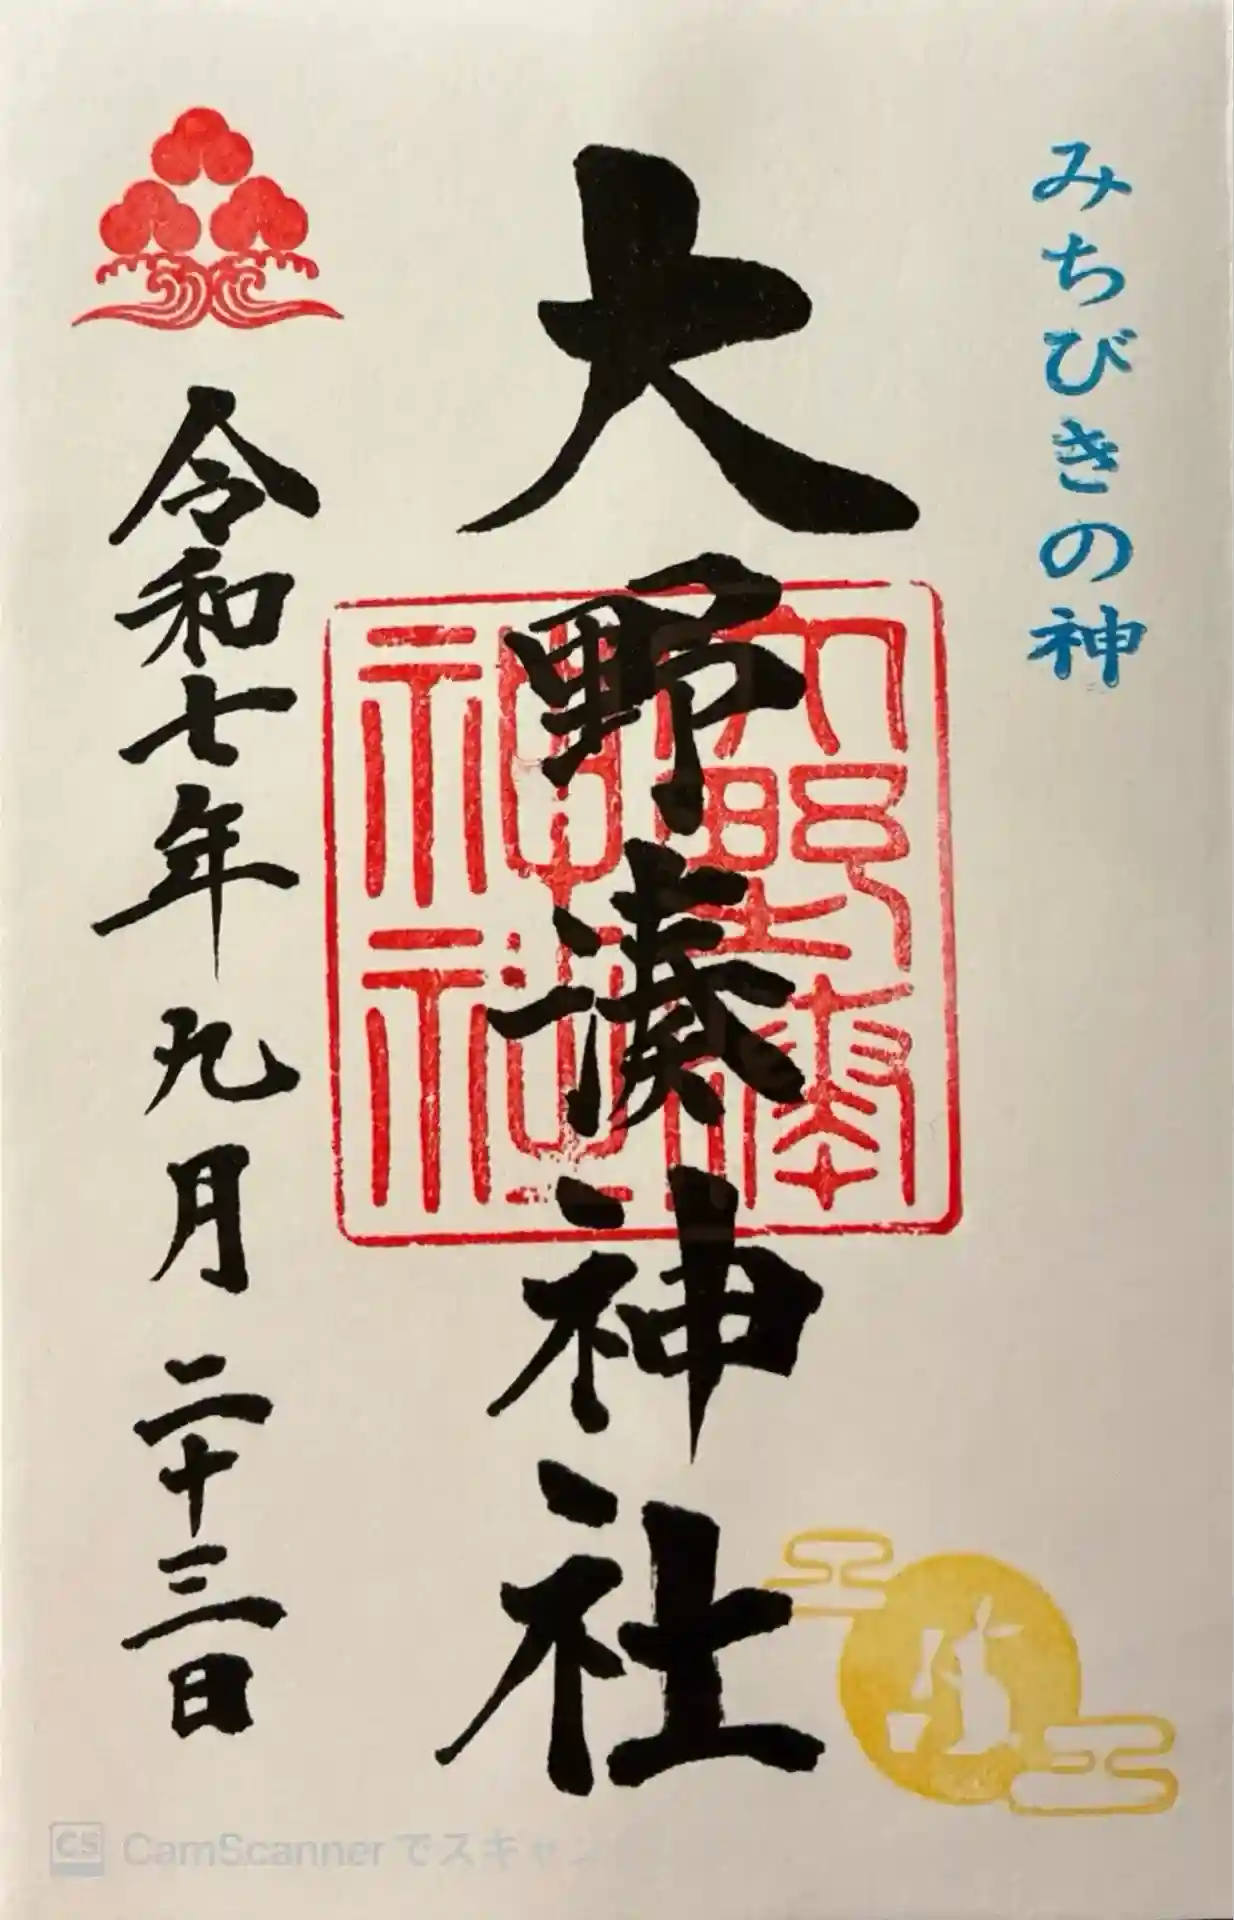 みちびきの神
大野湊神社
大野湊
神社神社
令和七年九月二十三日
CS CamScannerでスキャン